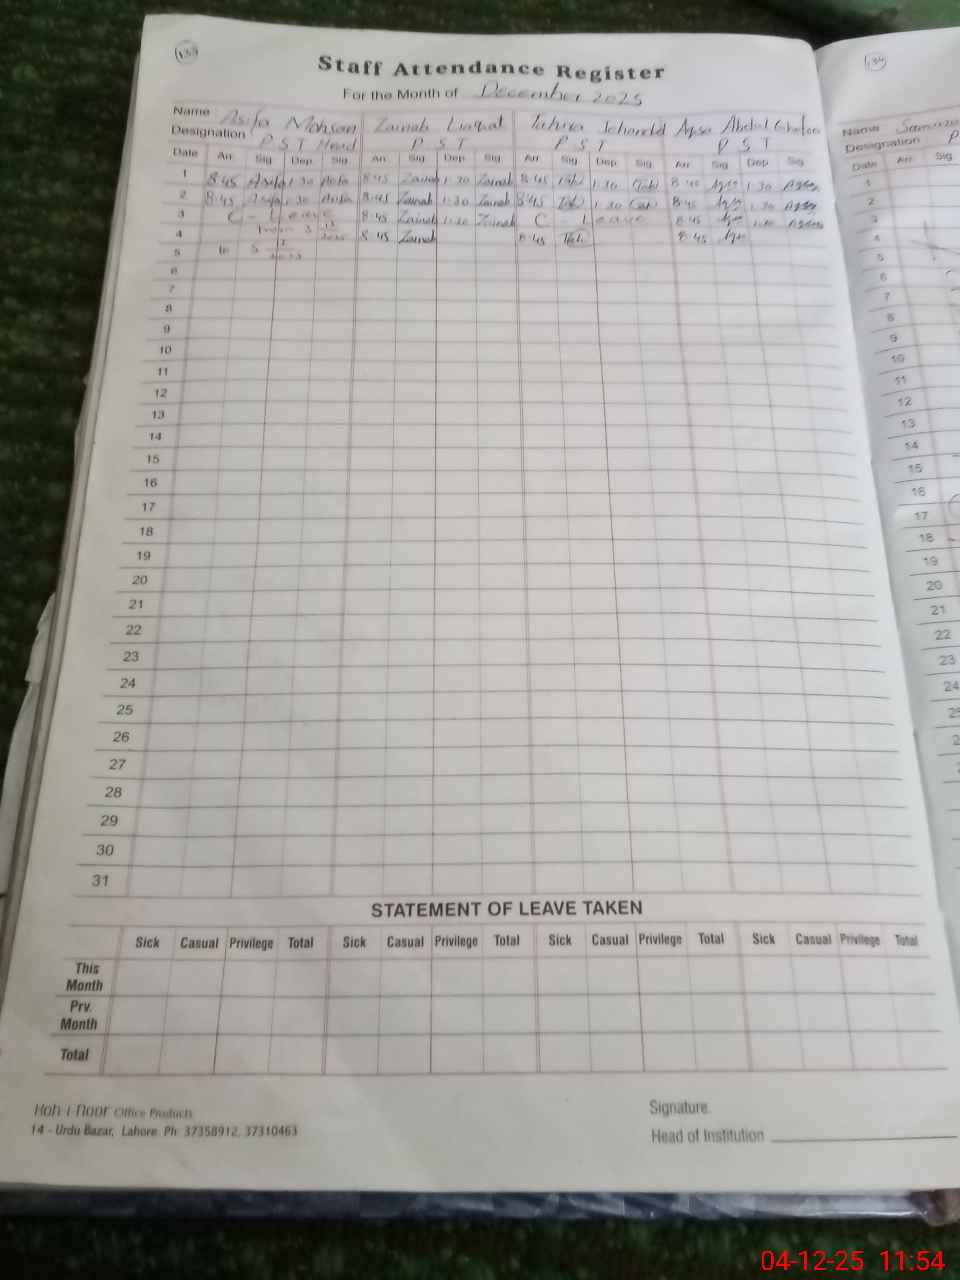 133
Staff Attendance Register
For the Month of December 2025
Name Asifa Mohsan Zainab Liaqat Jehanded Aqsa Abdul Ghafoor
Designation P S T Head P S T P S T P S T
Date Arr. Sig. Dep. Sig. Arr. Sig. Dep. Sig. Arr. Sig. Dep. Sig. Arr. Sig. Dep. Sig.
1 8:45 Asifa 1:30 Asifa 8:45 Zainab 1:30 Zainab 8:45 1:30 8:45 Aqsa 1:30 Aqsa
2 8:45 Asifa 1:30 Asifa 8:45 Zainab 1:30 Zainab 8:45 1:30 8:45 Aqsa 1:30 Aqsa
3 C - Leave 8:45 Zainab 1:30 Zainab C Leave 8:45 Aqsa 1:30 Aqsa
4 from 3 12 2025 8:45 Zainab 8:45 8:45 Aqsa
5 to 5 12 2025
6
7
8
9
10
11
12
13
14
15
16
17
18
19
20
21
22
23
24
25
26
27
28
29
30
31
STATEMENT OF LEAVE TAKEN
Sick Casual Privilege Total Sick Casual Privilege Total Sick Casual Privilege Total Sick Casual Privilege Total
This Month
Prv. Month
Total
Koh-i-noor Office Products
14 - Urdu Bazar, Lahore. Ph: 37358912, 37310463
Signature.
Head of Institution
134
Name
Designation P
Date Arr. Sig
1
2
3
4
5
6
7
8
9
10
11
12
13
14
15
16
17
18
19
20
21
22
23
24
04-12-25 11:54